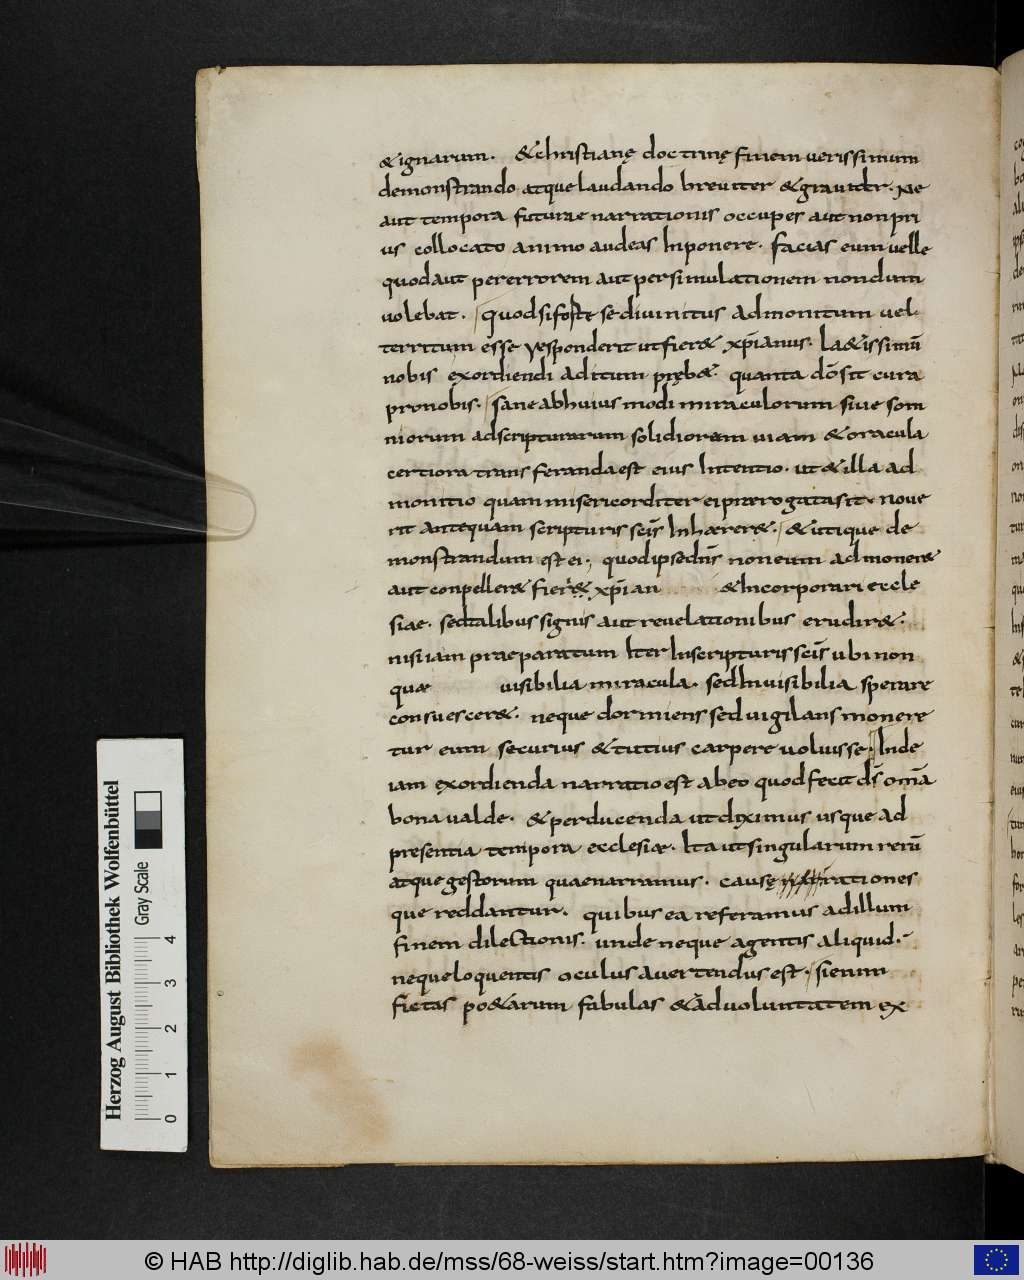 & ignarum. & christianę doctrinę finem uerissimum
demonstrando atque laudando breuiter & grauiter. Ne
aut tempora futurae narrationis occupes aut non pri
us collocato animo audeas Inponere. facias eum uelle
quod aut per errorem aut per simulationem nondum
uolebat. Quod si forte se diuinitus admonitum uel.
territum esse responderit ut fier& xp̄ianus. La&issimū
nobis exordiendi aditum pręb&. quanta dō sit cura
pro nobis. sane ab huius modi miraculorum siue som
niorum ad scripturarum solidiorem uiam & oracula
certiora transferenda est eius Intentio. ut & illa ad
monitio quam misericorditer ei praerogata sit. noue
rit antequam scripturis scīs Inhærer&. & utique de
monstrandum est ei, quod ipse dn̄s non eum admoner&
aut conpeller& fieri & xp̄ian & Incorporari eccle
siae. sed talibus signis aut reuelationibus erudir&.
nisi iam praeparatum Iter In scripturis scīs ubi non
quæ uisibilia miracula. sed Inuisibilia sperare
consuescer&. neque dormiens sed uigilans monere
tur eum securius & tutius carpere uoluisse. Inde
iam exordienda narratio est ab eo quod fecit d̄s omā
bona ualde. & perducenda ut diximus usque ad
presentia tempora ecclesiæ. Ita ut singularum rerū
atque gestorum quae narramus. causę rationes
que reddantur. quibus ea referamus ad illum
finem dilectionis. unde neque agentis aliquid.
neque loquentis oculus auertendus est. si enim
fictas po&arum fabulas & ad uoluntatem ex
Herzog August Bibliothek Wolfenbüttel
Gray Scale
0 1 2 3 4
© HAB http://diglib.hab.de/mss/68-weiss/start.htm?image=00136